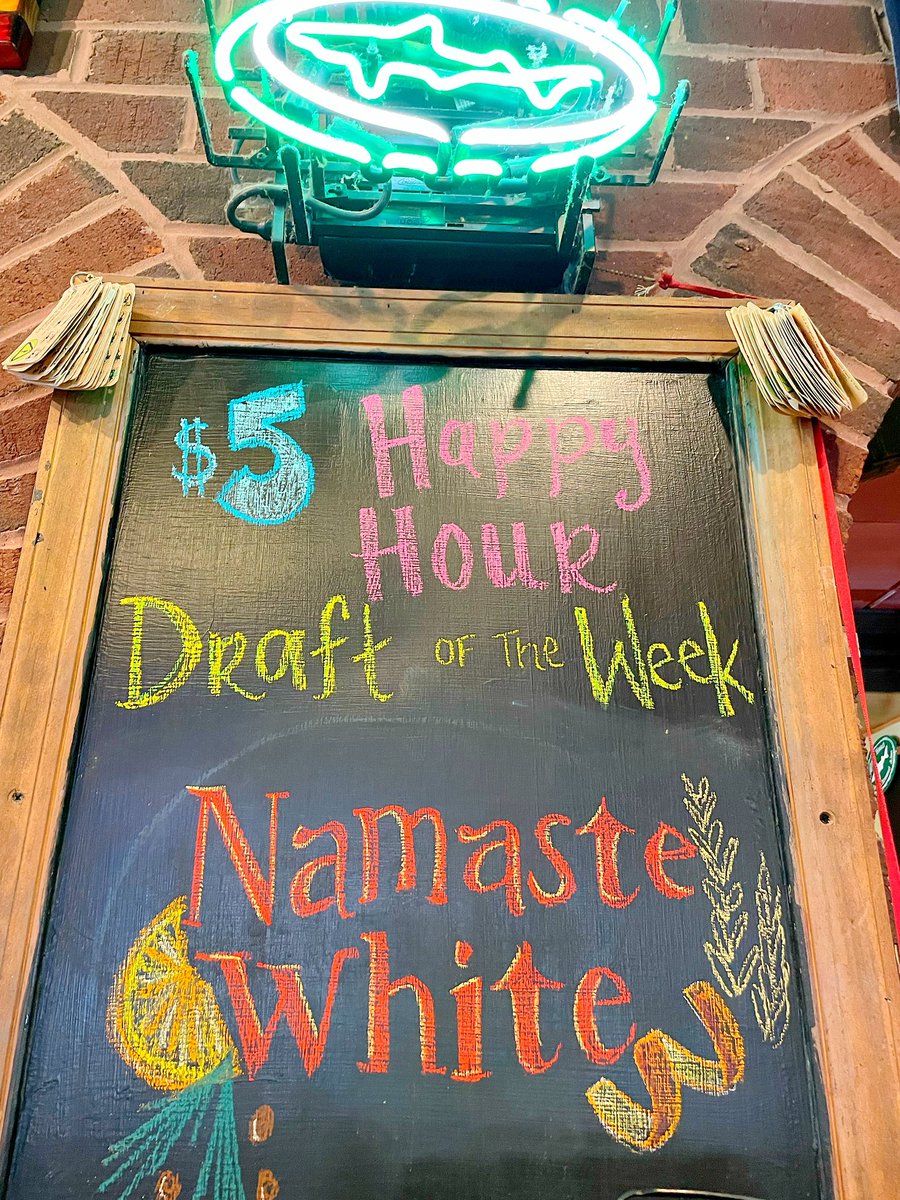 $5 Happy
Hour
Draft of The Week
Namaste
White